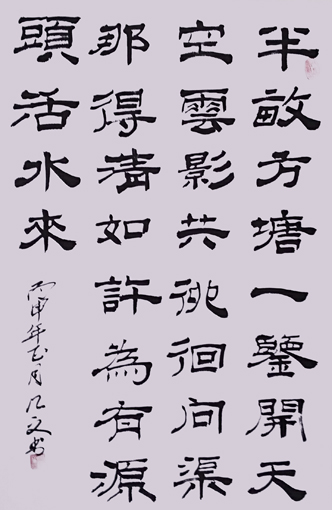 半畝方塘一鑒開天
空雲影共徘徊問渠
那得清如許為有源
頭活水來
丙申年月書